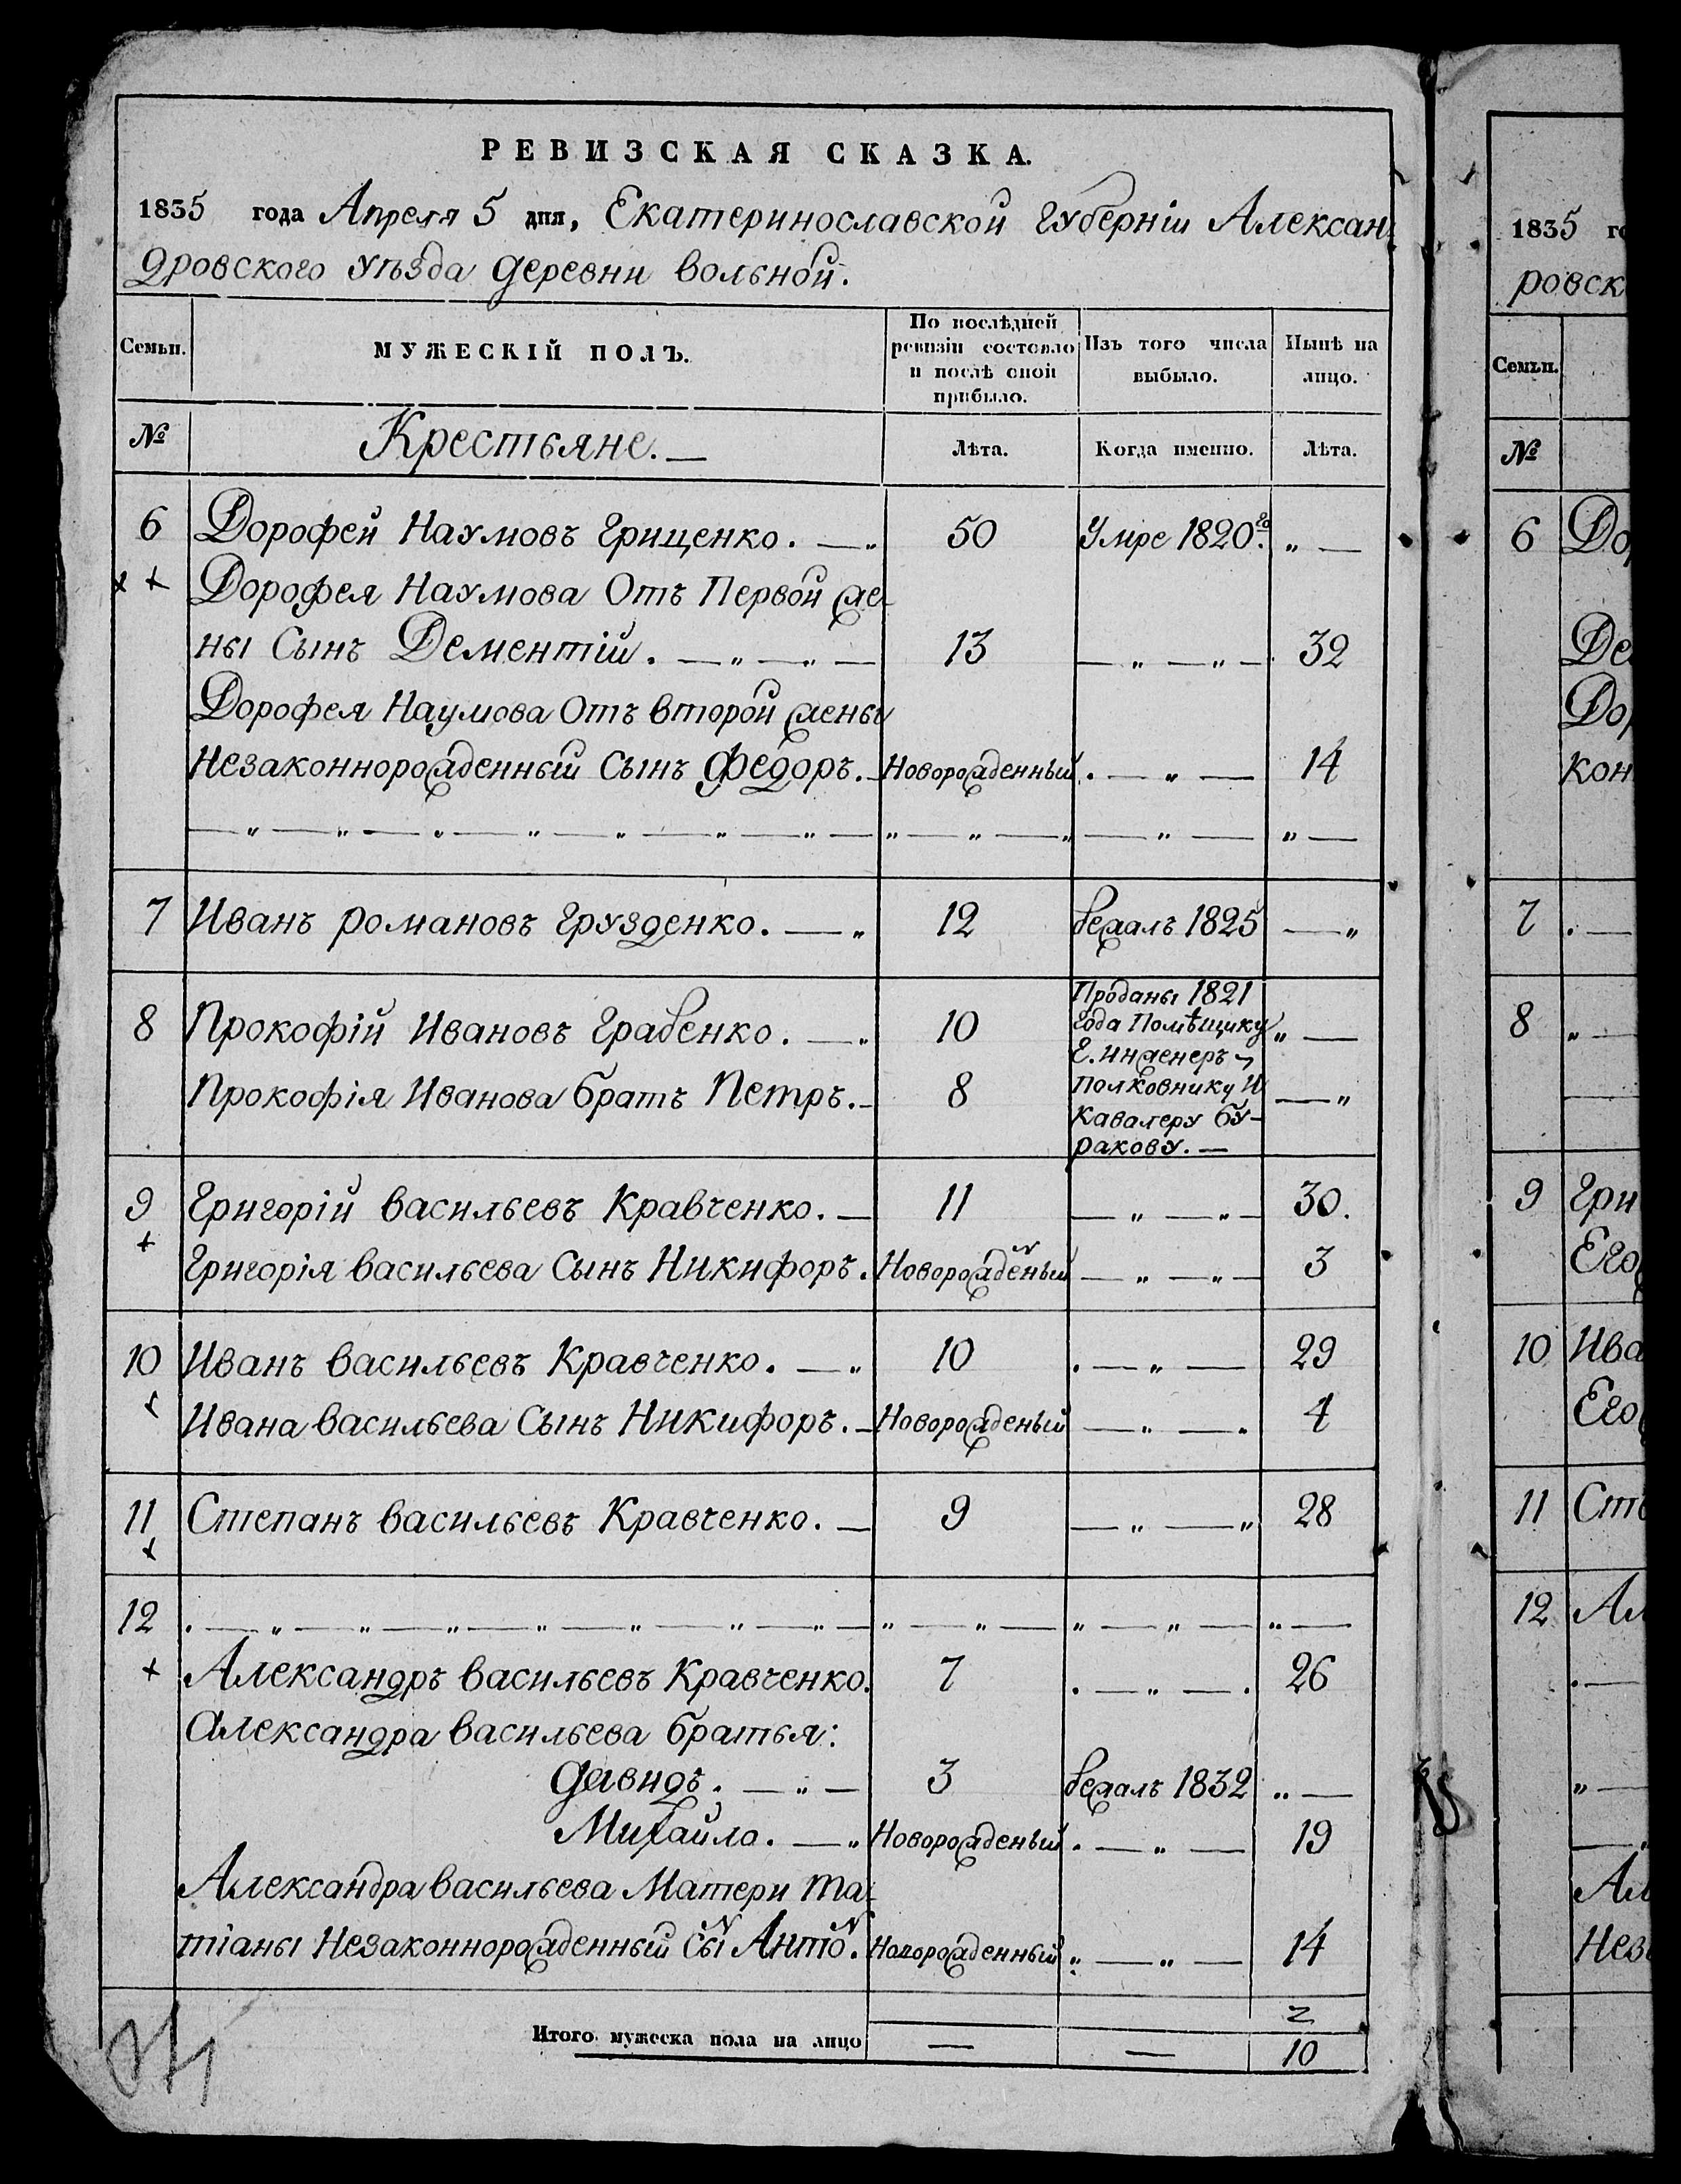 РЕВИЗСКАЯ СКАЗКА.
1835 года Апреля 5 дня, Екатеринославской губерніи Алексан-
дровского уѣзда деревни вольной.
Семьи. МУЖЕСКІЙ ПОЛЪ. По послѣдней ревизіи состояло и послѣ оной прибыло. Изъ того числа выбыло. Нынѣ на лицо.
№ Крестьяне. Лѣта. Когда именно. Лѣта.
6 Дорофей Наумовъ Грищенко. 50 Умре 1820го. „ —
Дорофея Наумова Отъ Первой же-
ны Сынъ Дементій. 13 — „ — „ — 32
Дорофея Наумова Отъ второй жены
Незаконнорожденный Сынъ Федоръ. Новорожденный. — „ — 14
7 Иванъ Романовъ Грузденко. — „ 12 бежалъ 1825 — „
8 Прокофій Ивановъ Грабенко. — „ 10 Проданы 1821
года Помѣщику „ —
Е. инженеръ
Прокофія Иванова братъ Петръ. 8 полковнику И — „
Кавалеру Бу-
ракову. —
9 Григорій васильевъ Кравченко. — 11 — „ — „ — 30.
Григорія васильева Сынъ Никифоръ. Новорожденый — „ — „ — 3
10 Иванъ васильевъ Кравченко. — „ 10 . — „ — 29
Ивана васильева Сынъ Никифоръ. Новорожденый — „ — . 4
11 Степанъ васильевъ Кравченко. — 9 — „ — „ 28
12
Александръ васильевъ Кравченко. 7 . — „ — . 26
Александра васильева братья:
Давидъ. — „ — 3 бежалъ 1832 „ —
Михайло. — „ Новорожденый . — „ — 19
Александра васильева Матери Та-
тіаны Незаконнорожденный сынъ Антонъ. Новорожденный „ — „ — 14
2
Итого мужеска пола на лицо — — 10
1835 го
ровск
Семьи.
№
6 До
Де
До
кон
7 . —
8 „ —
9 Гри
Его
10 Ива
Его
11 Сте
12 Ал
Ал
Нез